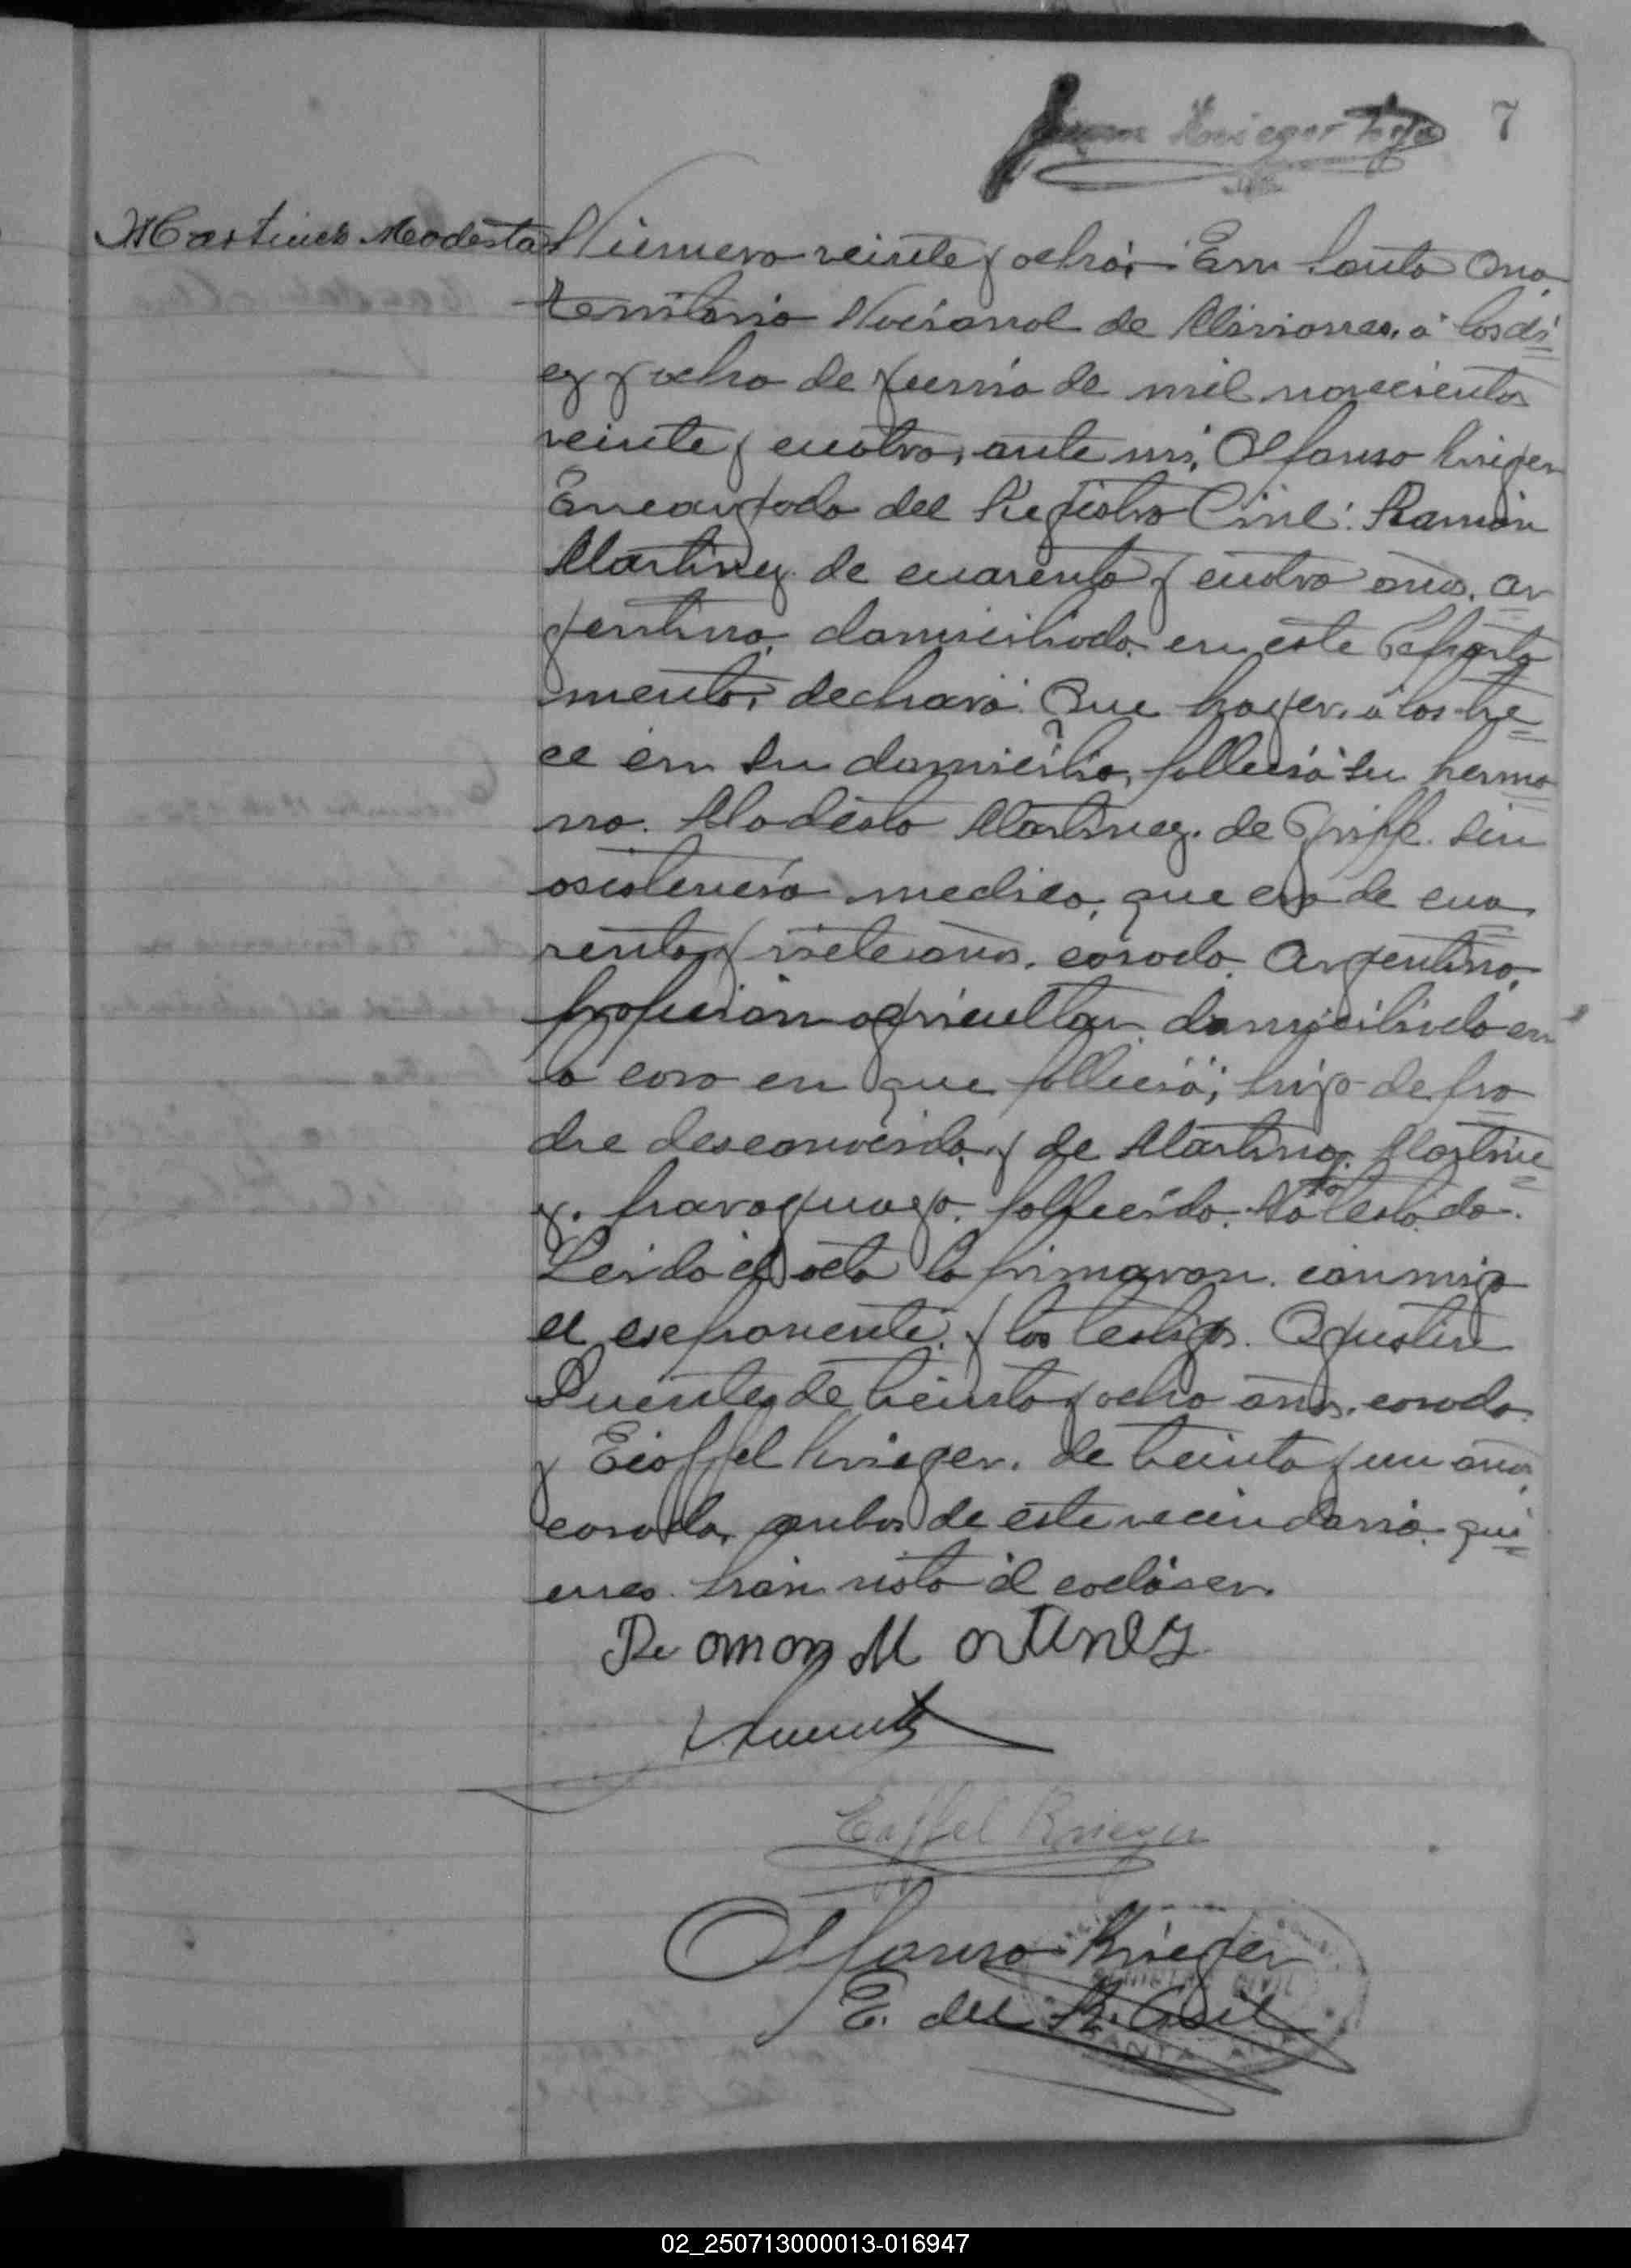 7
Martinez Modesta
Número veinte y ocho: En Santa Ana,
territorio Nacional de Misiones, á los di
ez y ocho de Junio de mil novecientos
veinte y cuatro, ante mi, Alfonso Krieger
Encargado del Registro Civil: Ramón
Martinez de cuarenta y cuatro años, ar
gentino, domiciliado en este Departa
mento, declaró: Que hayer, á las tre
ce en su domicilio, falleció su herma
na. Modesta Martinez de Griff. sin
asistencia medica, que era de cua
renta y siete años, casada, Argentina,
profesión agricultar domiciliada en
la casa en que falleció; hija de pa
dre desconocido y de Martina Martine
z. paraguaya. fallecida. No testado.
Leida el acta la firmaron conmigo
el exponente y los testigos. Agustin
Puentes de treinta y ocho años, casado
y Eioffel Krieger, de treinta y un años
casado, ambos de este vecindario. qui
enes han visto el cadáver.
Ramon Martinez
Eaffel Krieger
Alfonso Krieger
E. del R. Civil
REGISTRO CIVIL
SANTA ANA
02_250713000013-016947